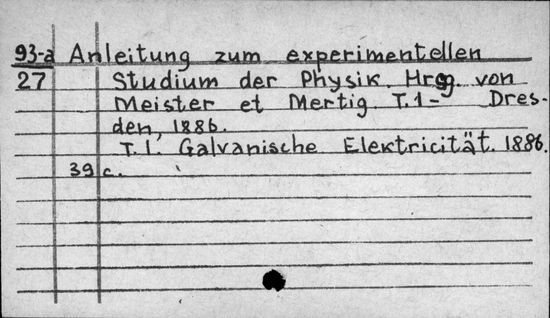 93-a Anleitung zum experimentellen
27 Studium der Physik. Hrsg. von
Meister et Mertig T. 1- Dres-
den, 1886.
T. 1. Galvanische Elektricität. 1886.
39 c.